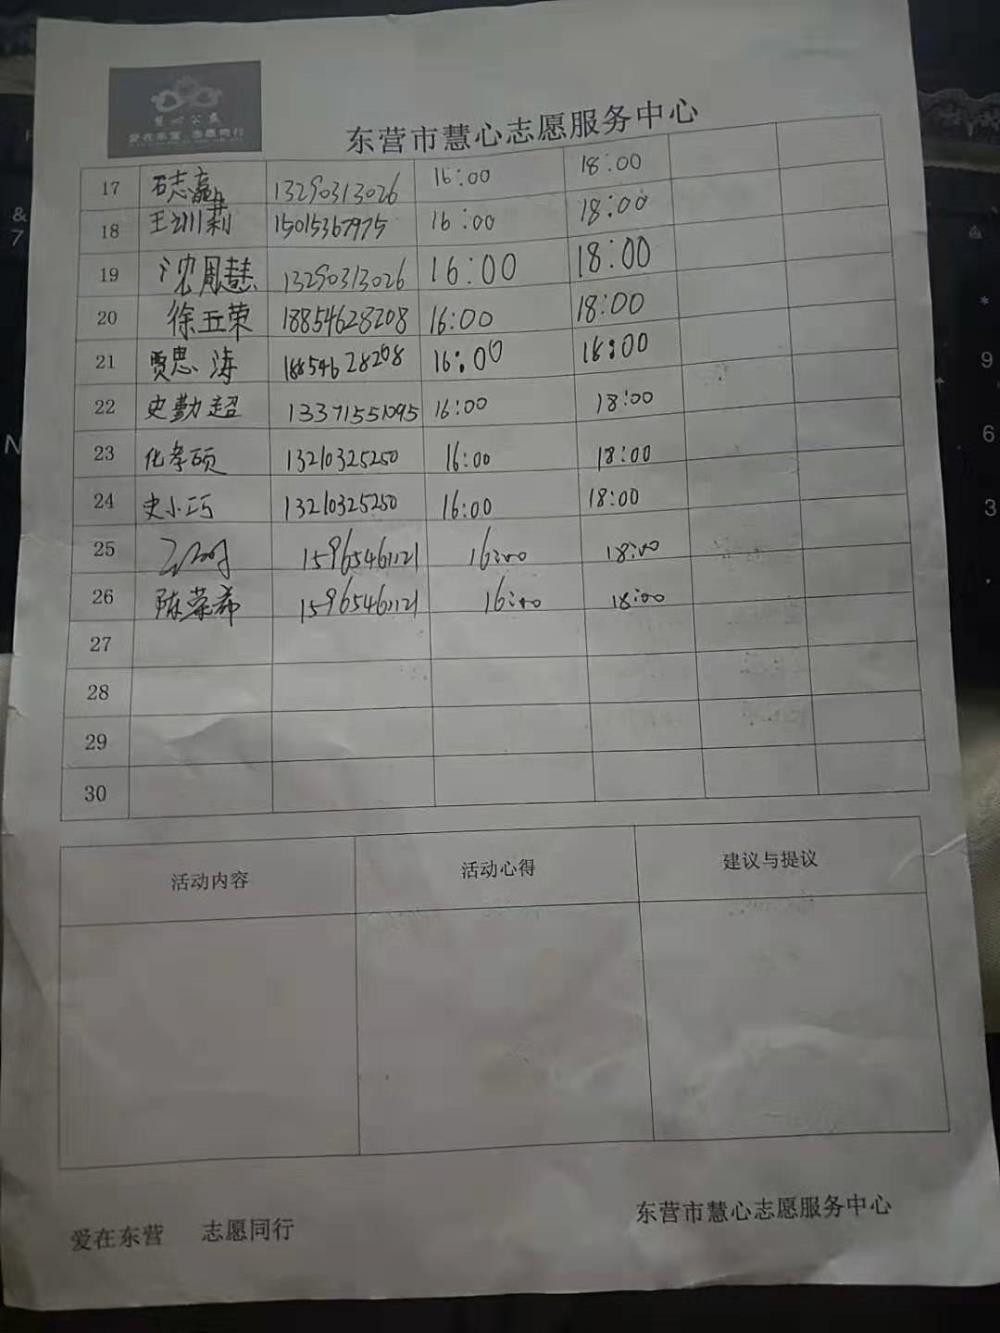 慧心公益
爱在东营 志愿同行
东营市慧心志愿服务中心
17 石志赢 13290313026 16:00 18:00
18 王训莉 15015367975 16:00 18:00
19 沈周慧 13290313026 16:00 18:00
20 徐五荣 18854628208 16:00 18:00
21 贾思涛 18854628208 16:00 18:00
22 史勤超 13371551095 16:00 18:00
23 化孝硕 13210325250 16:00 18:00
24 史小巧 13210325250 16:00 18:00
25 15965461121 16:00 18:00
26 陈荣希 15965461121 16:00 18:00
27
28
29
30
活动内容 活动心得 建议与提议
爱在东营 志愿同行 东营市慧心志愿服务中心